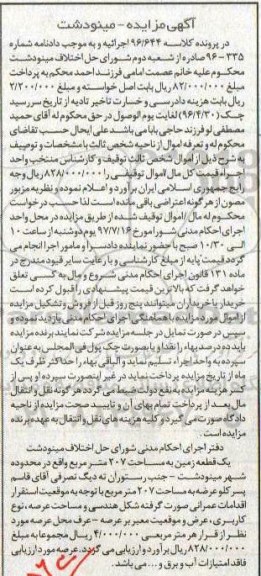 آگهی مزایده - مینودشت
در پرونده کلاسه ۹۶/۶۴۴ اجرائیه و به موجب دادنامه شماره
۳۳۵-۹۶ صادره از شعبه دوم شورای حل اختلاف مینودشت
محکوم علیه خانم عصمت امامی فرزند احمد محکم به پرداخت
مبلغ ۸۲/۰۰۰/۰۰۰ ریال بابت اصل خواسته و مبلغ ۲/۲۰۰/۰۰۰
ریال بابت هزینه دادرسی و خسارت تاخیر تادیه از تاریخ سررسید
چک (۹۶/۴/۳۰) لغایت یوم الوصول در حق محکوم له آقای حمید
مصطفی لو فرزند حاجی بابا می باشد علی ایحال حسب تقاضای
محکوم له و تعرفه اموال از ناحیه شخص ثالث با مشخصات و توصیف
به شرح ذیل از اموال شخص ثالث توقیف و کارشناس منتخب واحد
اجراء قیمت کل مال /اموال توقیفی را ۸۲۸/۰۰۰/۰۰۰ ریال وجه
رایج جمهوری اسلامی ایران برآورد و اعلام نموده و نظریه مزبور
مصون از هر گونه اعتراضی باقی مانده است لذا حسب درخواست
محکوم له مال /اموال توقیف شده از طریق مزایده در محل واحد
اجرای احکام مدنی شورا مورخ ۹۷/۷/۱۶ یوم دوشنبه از ساعت ۱۰
الی ۱۰/۳۰ صبح با حضور نماینده دادسرا و مامور اجرا انجام می
گردد قیمت پایه از مبلغ کارشناسی و با رعایت سایر قیود مندرج در
ماده ۱۳۱ قانون اجرای احکام مدنی شروع و مال به کسی تعلق
خواهد گرفت که بالاترین قیمت پیشنهادی را قبول کرده است
خریدار یا خریداران میتوانند پنج روز قبل از فروش و تشکیل مزایده
از اموال مورد مزایده با هماهنگی اجرای احکام مدنی بازدید نموده و
سپس در صورت تمایل در جلسه مزایده شرکت نمایند برنده مزایده
باید ده درصد بهاء را نقدا و یا بصورت چک پول فی المجلس به عنوان
سپرده به واحد اجراء تسلیم نماید و الباقی بهاء را حداکثر ظرف یک
ماه از تاریخ مزایده پرداخت نماید در غیر اینصورت سپرده او پس از
کسر هزینه مزایده به نفع دولت ضبط می گردد هر گونه نقل و انتقال
مال بعد از پرداخت تمام بهای آن و تایید صحت مزایده از ناحیه
دادگاه صورت می گیرد و کلیه هزینه های نقل و انتقال به عهده برنده
مزایده است.
دفتر اجرای احکام مدنی شورای حل اختلاف مینودشت
یک قطعه زمین به مساحت ۲۰۷ متر مربع واقع در محدوده
شهر مینودشت - جنب رستوران ته دیگ تصرفی آقای قاسم
پسر کلو عرصه به مساحت ۲۰۷ متر مربع با توجه به موقعیت استقرار
اقدامات عمرانی صورت گرفته شکل هندسی و مساحت عرصه، نوع
کاربری، عرض و موقعیت معبر بر عرصه - عرف محل عرصه مورد
نظر از قرار هر متر مربعی ۴/۰۰۰/۰۰۰ ریال مجموعا به مبلغ
۸۲۸/۰۰۰/۰۰۰ ریال برآورد و ارزیابی می گردد. عرصه مورد ارزیابی
فاقد امتیازات آب و برق و ... می باشد.